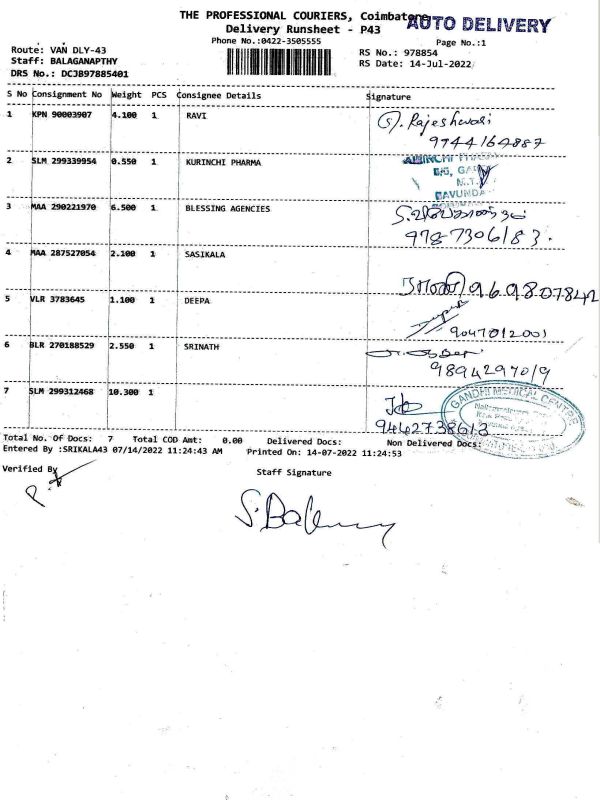 THE PROFESSIONAL COURIERS, Coimbatore
AUTO DELIVERY
Delivery Runsheet - P43
Phone No.:0422-3505555
Page No.:1
Route: VAN DLY-43
RS No.: 978854
Staff: BALAGANAPTHY
RS Date: 14-Jul-2022
DRS No.: DCJB97885401
S No Consignment No Weight PCS Consignee Details Signature
1 KPN 90003907 4.100 1 RAVI
S. Rajeshwari
9744164887
2 SLM 299339954 0.550 1 KURINCHI PHARMA
3 MAA 290221970 6.500 1 BLESSING AGENCIES
978-7306183.
4 MAA 287527054 2.100 1 SASIKALA
969807842
5 VLR 3783645 1.100 1 DEEPA
9047012001
6 BLR 270188529 2.550 1 SRINATH
9894297019
7 SLM 299312468 10.300 1
GANDHI MEDICAL CENTRE
9442738613
Total No. Of Docs: 7 Total COD Amt: 0.00 Delivered Docs: Non Delivered Docs:
Entered By :SRIKALA43 07/14/2022 11:24:43 AM Printed On: 14-07-2022 11:24:53
Verified By
Staff Signature